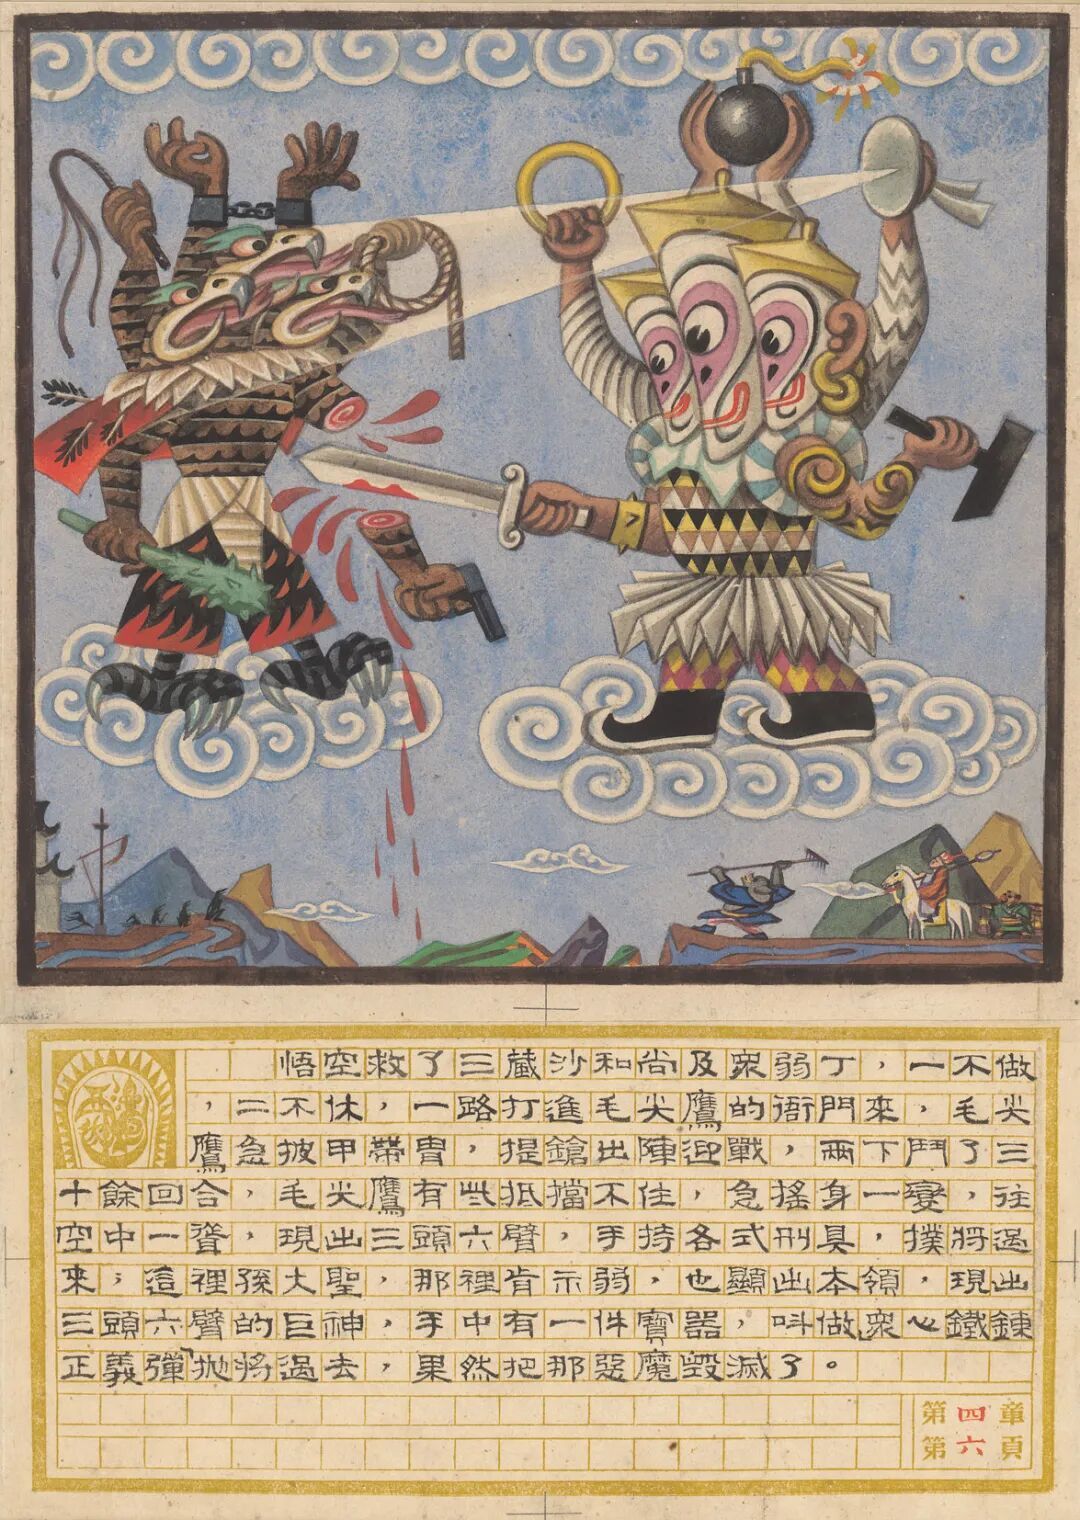 悟空救了三藏沙和尚及衆弱丁，一不做
，二不休，一路打進毛尖鷹的衙門來，毛尖
鷹急披甲帶冑，提鎗出陣迎戰，兩下鬥了三
十餘回合，毛尖鷹有些抵擋不住，急搖身一變，往
空中一聳，現出三頭六臂，手持各式刑具，撲將過
來；這裡孫大聖，那裡肯示弱，也顯出本領，現出
三頭六臂的巨神，手中有一件寶器，叫做「衆心鐵鍊
正義彈」拋將過去，果然把那惡魔毀滅了。
第四章
第六頁